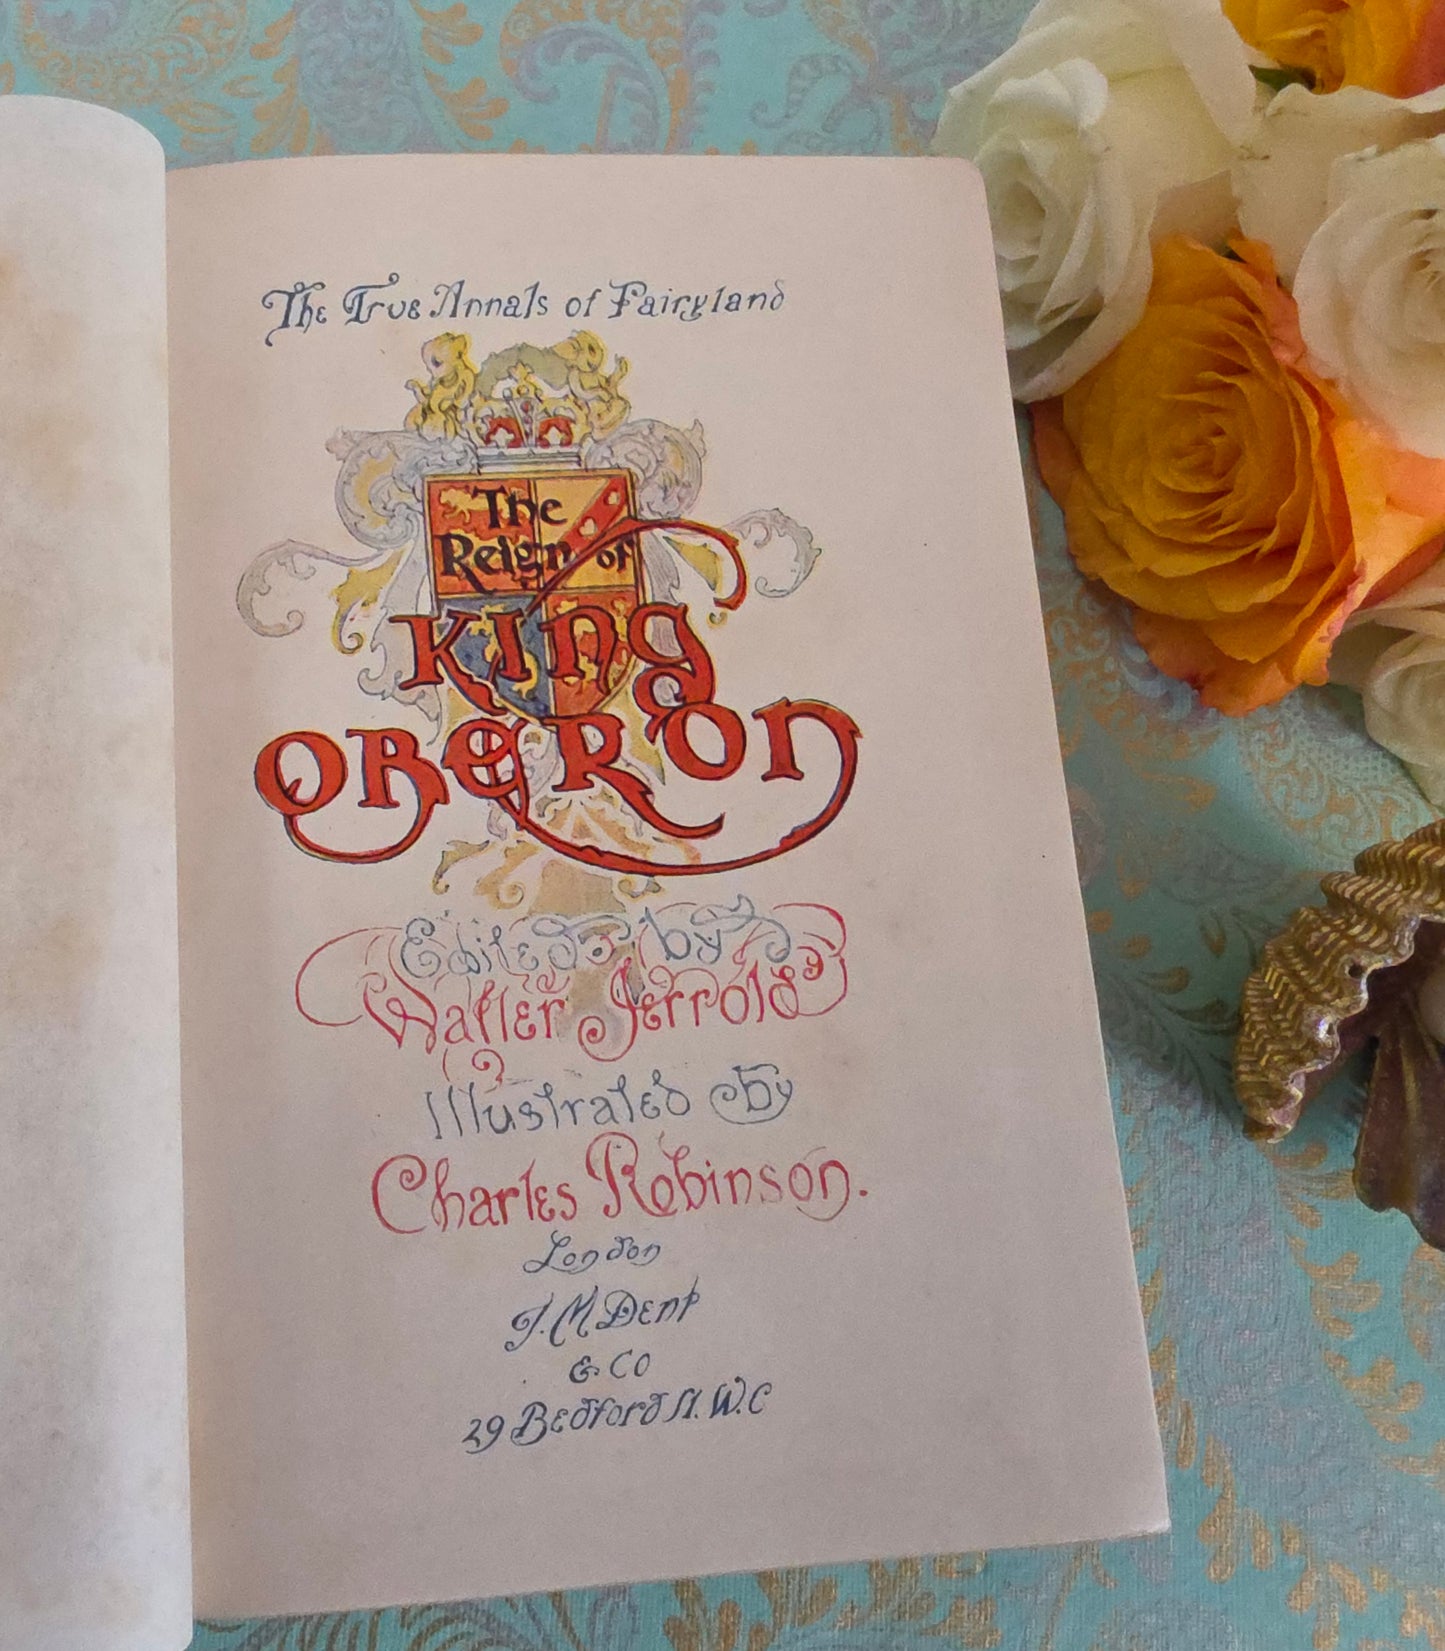 The True Annals of Fairyland
The
Reign of
KING
OBERON
Edited by
Walter Jerrold
Illustrated by
Charles Robinson.
London
J. M Dent
& Co
29 Bedford St. W.C